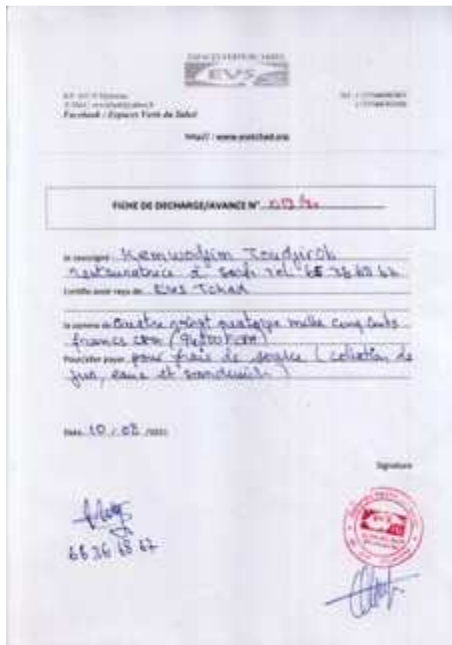 ESPACES VERTS DU SAHEL
EVS
Facebook : Espaces Verts du Sahel
http// : www.evstchad.org
FICHE DE DECHARGE/AVANCE N°
Je soussigné
restauratrice à Sarh Tel 66 36 68 62
Certifie avoir reçu de EVS Tchad
la somme de Quatre vingt quatorze mille cinq cents
francs CFA (94500 FCFA)
Pour/être payer pour frais de service (collation de
jus, eaux et sandwich)
Date 10 / 08 /
Signature
66 36 68 62
EVS